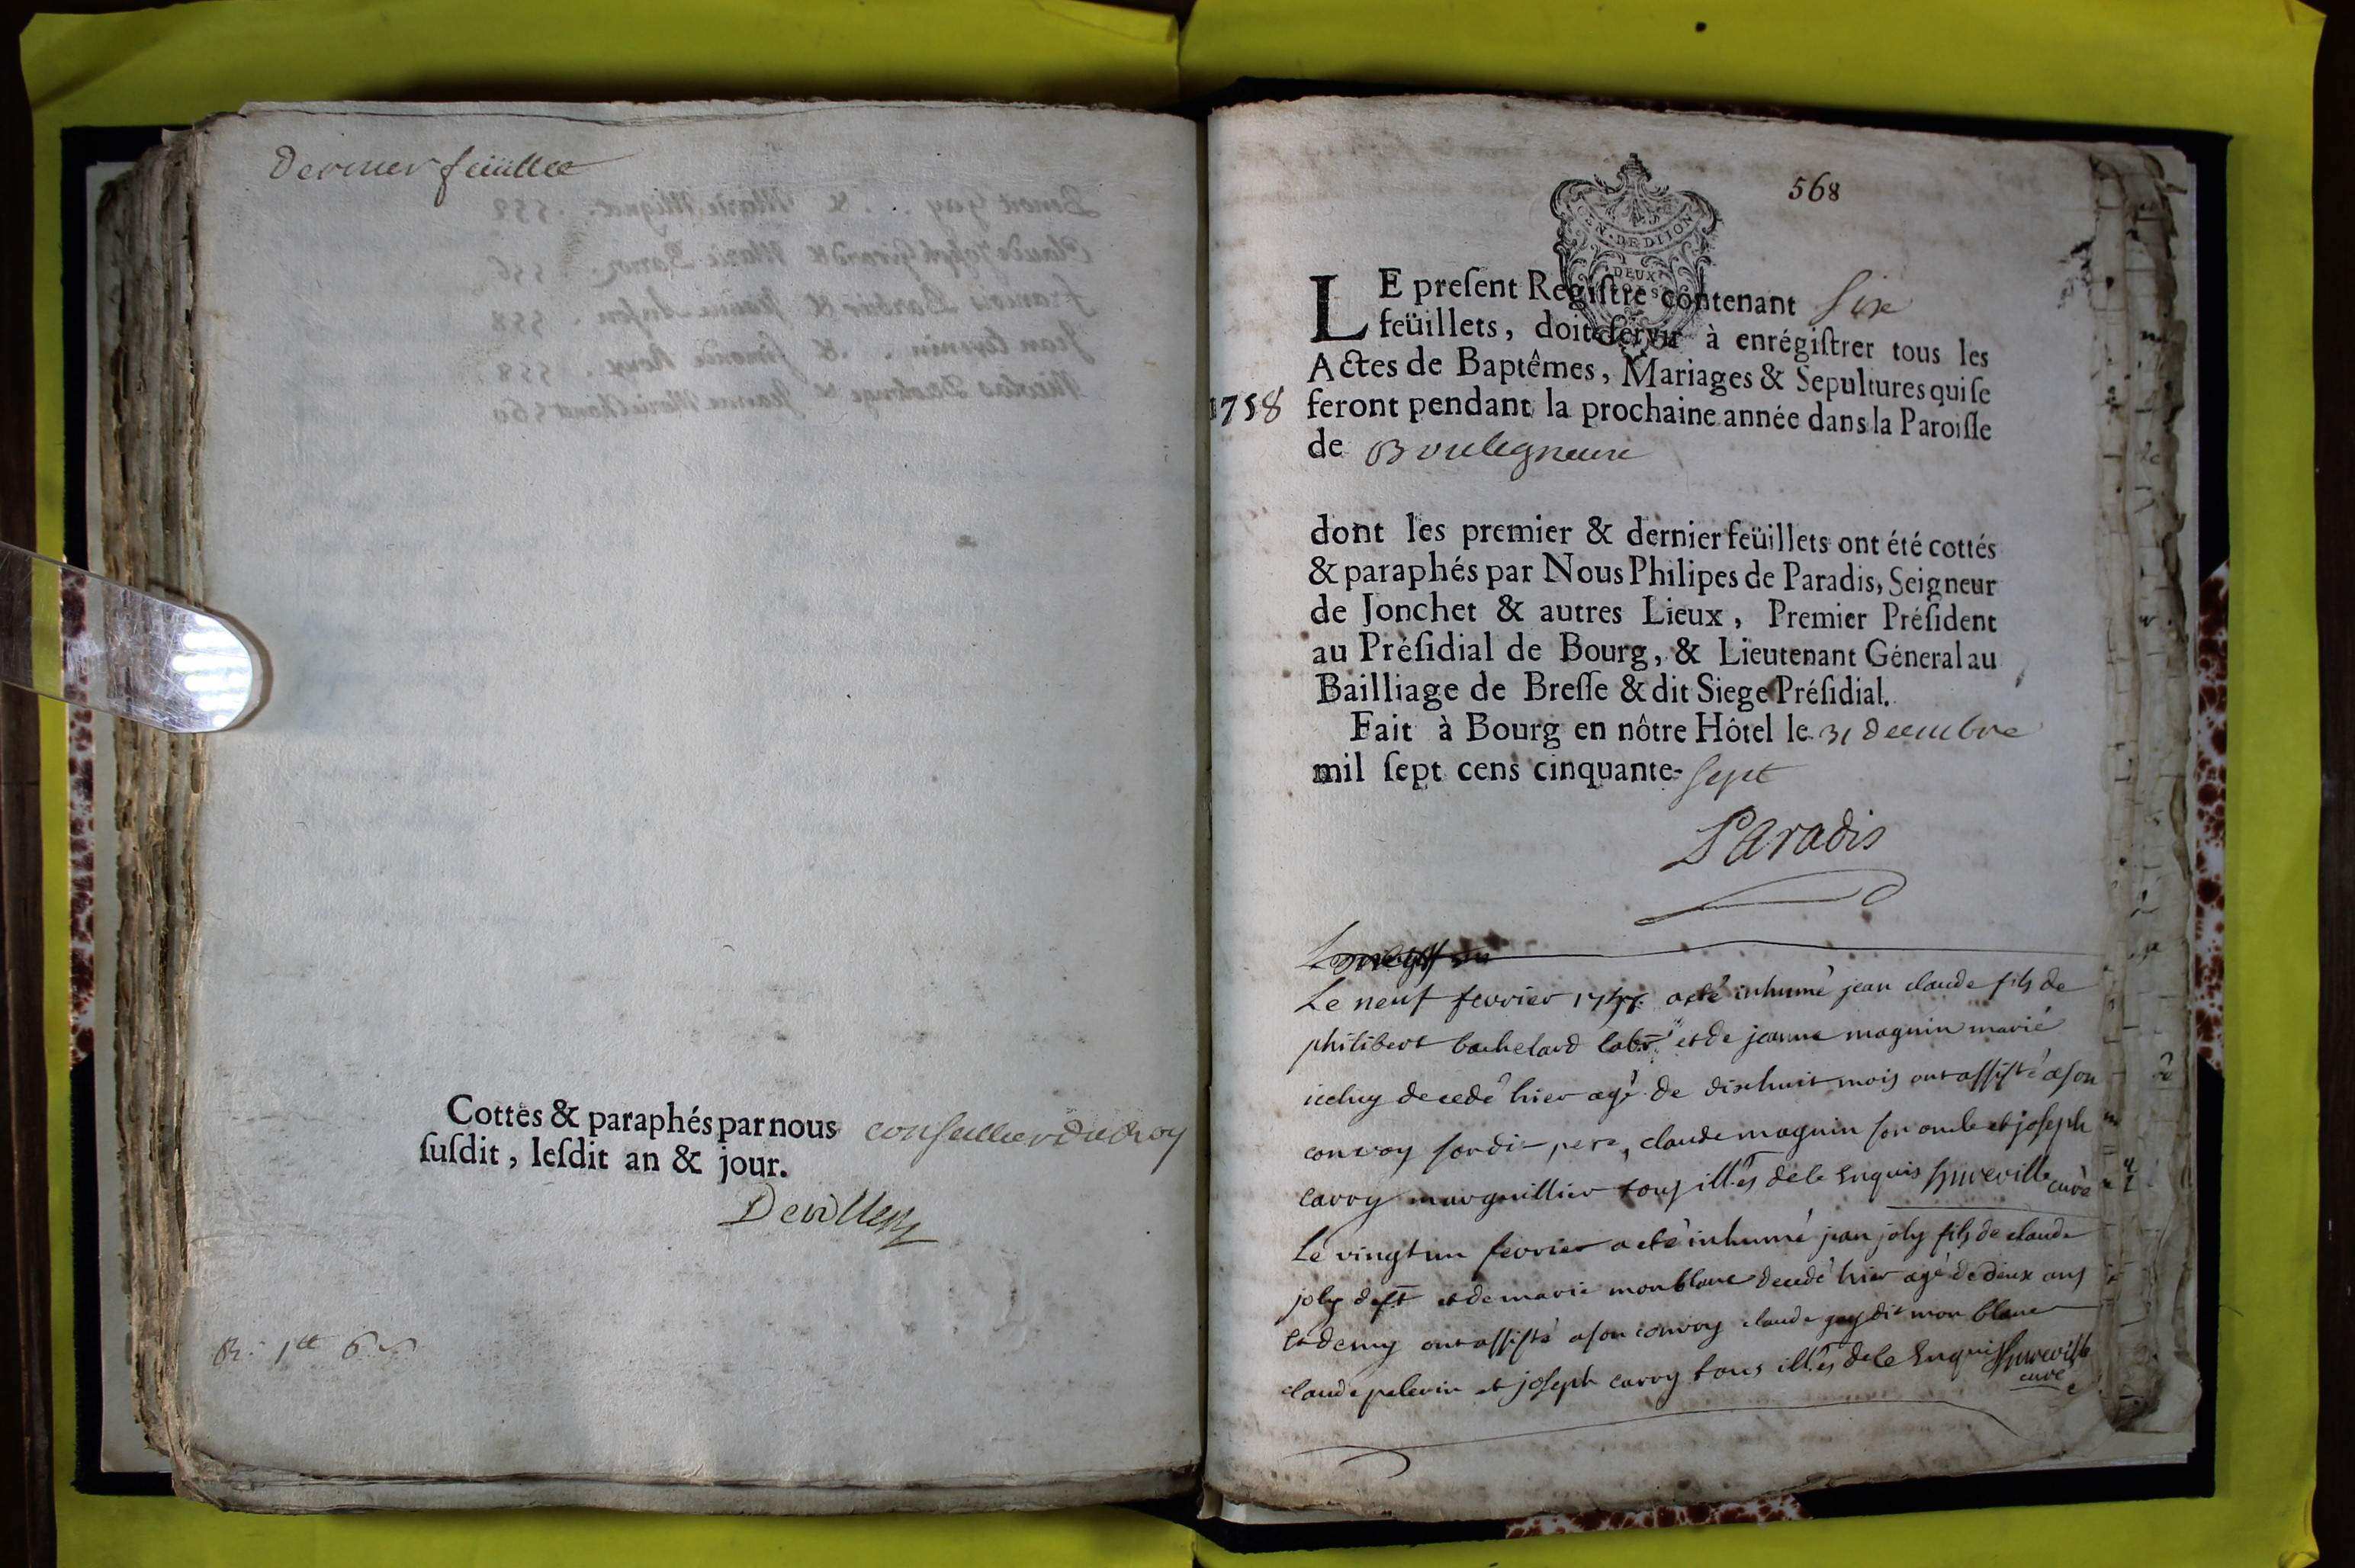 Dernier feüillet
Cottés & paraphés par nous conseiller du Roy
ſuſdit, leſdit an & jour.
568
GEN · DE DIJON
DEUX
LE preſent Regiſtre contenant Six
feüillets, doit ſervir à enrégiſtrer tous les
Actes de Baptêmes, Mariages & Sepultures qui ſe
1758 feront pendant la prochaine année dans la Paroiſſe
de Bouligneux
dont les premier & dernier feüillets ont été cottés
& paraphés par Nous Philipes de Paradis, Seigneur
de Jonchet & autres Lieux, Premier Préſident
au Préſidial de Bourg, & Lieutenant Géneral au
Bailliage de Breſſe & dit Siege Préſidial.
Fait à Bourg en nôtre Hôtel le 31 decembre
mil ſept cens cinquante-sept
Paradis
Le neuf fevrier a eté inhumé jean claude fils de
philibert bachelard labr. et de jeanne magnin marié
iceluy decedé hier agé de dixhuit mois ont assisté a son
convoy sondit pere, claude magnin son oncle et joseph
carry marguillier tous illés de le enquis curé
Le vingt un fevrier a eté inhumé jean joly fils de claude
joly deft et de marie monblanc decedé hier agé de deux ans
et demy ont assisté a son convoy claude guy dit mon blanc
claude pelerin et joseph carry tous illés de le enquis
curé